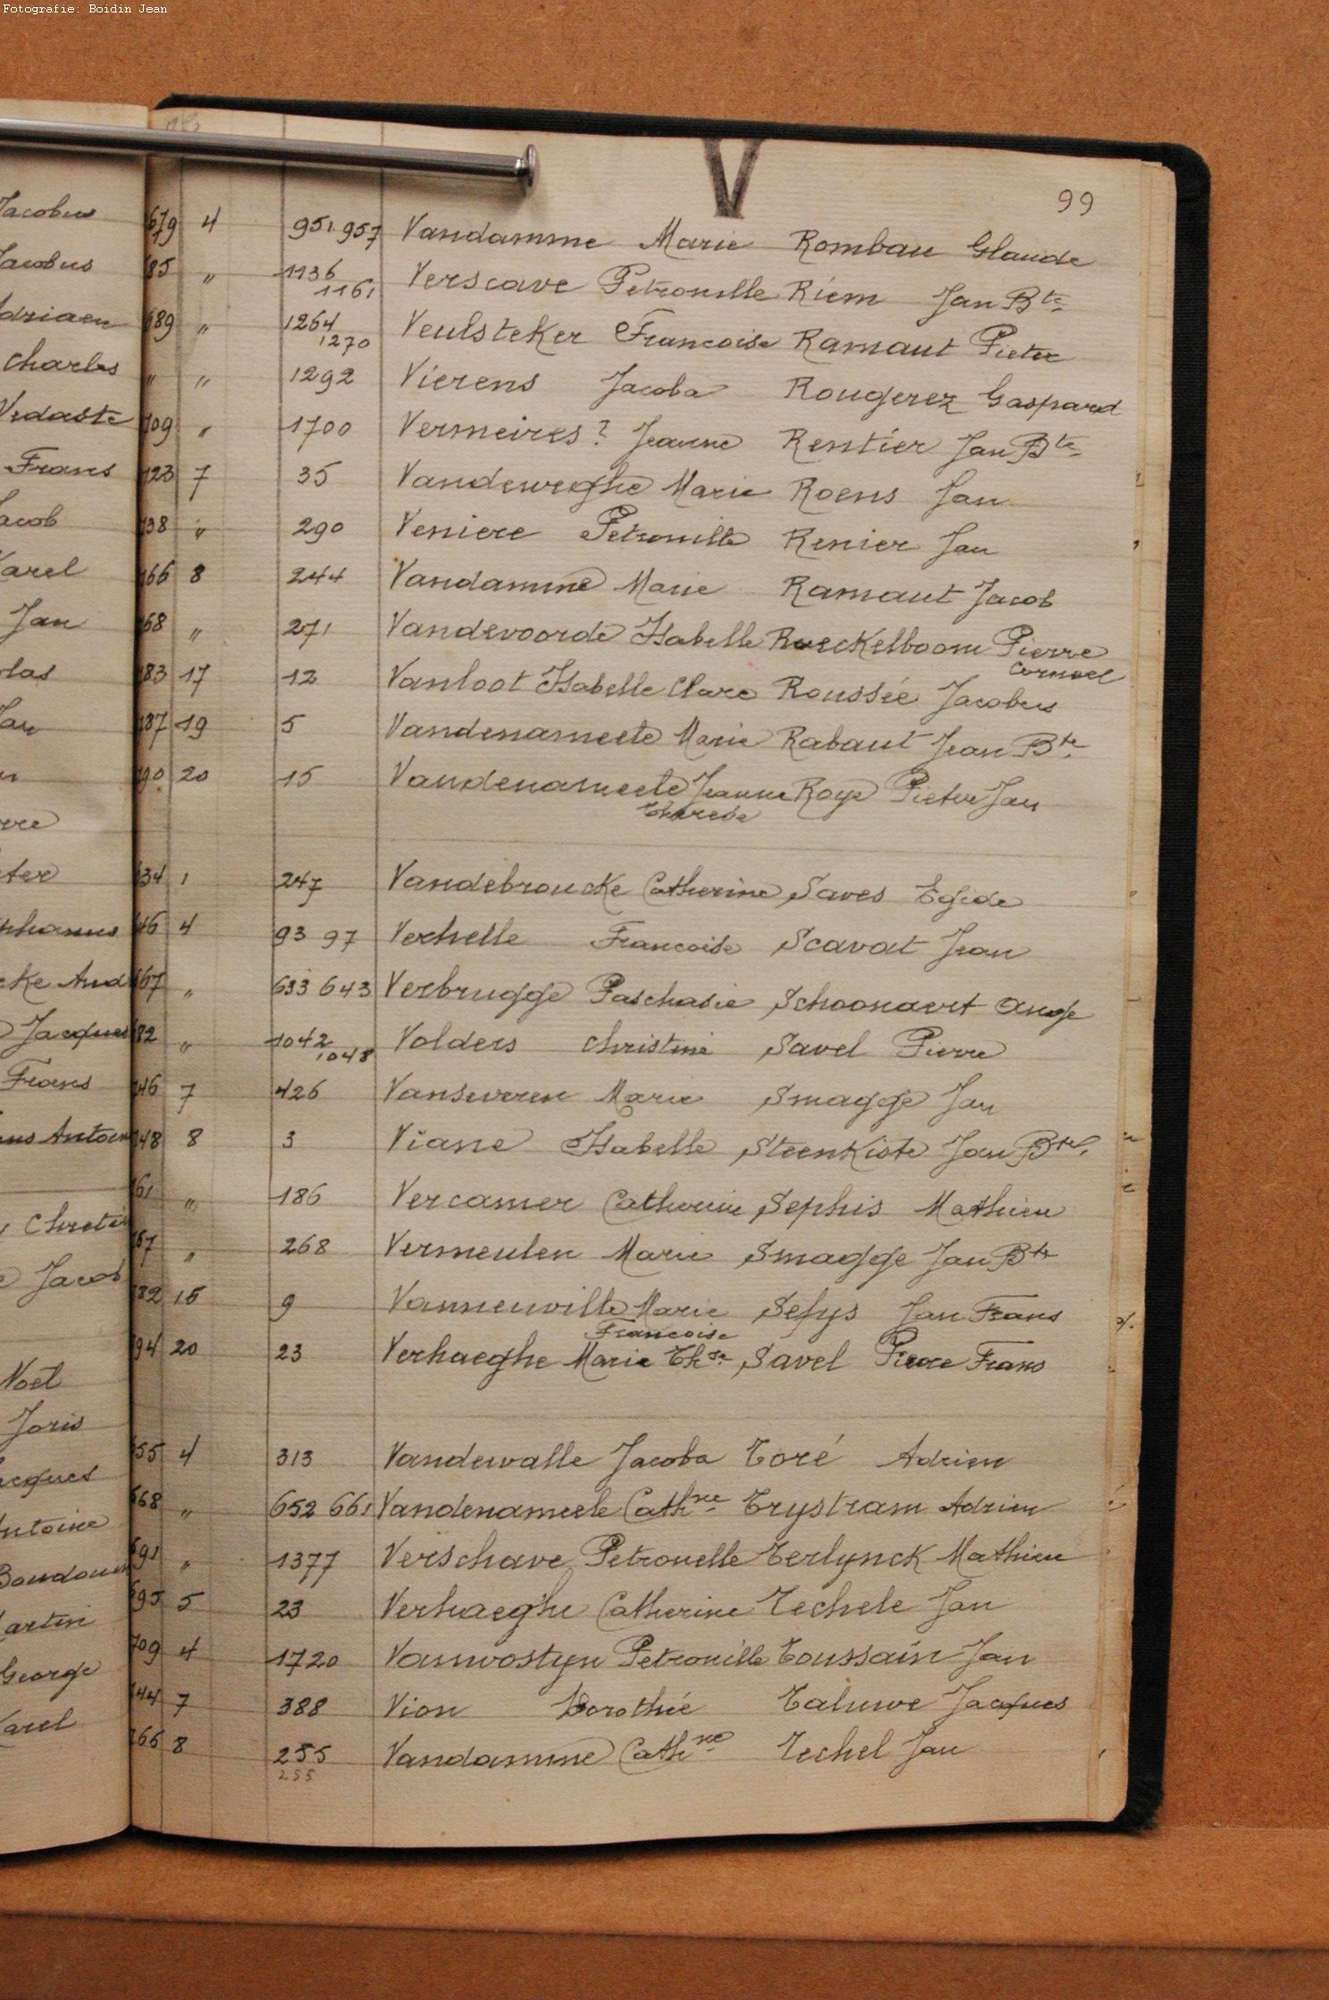 Fotografie: Boidin Jean
V
99
Jacobus
Jacobus
Adriaen
Charles
Vedaste
Frans
Jacob
Karel
Jan
Jan
Jacques
Frans
Jacob
Noel
Joris
Jacques
Antoine
Boudouin
Martin
George
Karel
679 4 951 957 Vandamme Marie Rombau Glaude
85 " 1136 1161 Verscave Petronille Riem Jan Bte
689 " 1264 1270 Veulsteker Francoise Ramaut Pieter
" " 1292 Vierens Jacoba Rougerez Gaspard
709 " 1700 Vermeires? Jeanne Rentier Jan Bte
123 7 35 Vandeweghe Marie Roens Jan
138 " 290 Veniere Petronille Renier Jan
166 8 244 Vandamme Marie Ramaut Jacob
68 " 271 Vandevoorde Isabelle Rueckelboom Pierre Corneel
183 17 12 Vanloot Isabelle Clare Roussée Jacobus
187 19 5 Vandenameele Marie Rabaut Jean Bte
190 20 15 Vandenameele Jeanne Therese Roye Pieter Jan
634 1 247 Vandebroucke Catherine Saves Egide
46 4 93 97 Verhelle Francoise Scavat Jean
667 " 633 643 Verbrugge Paschasie Schoonaert Ange
682 " 1042 1048 Volders Christine Savel Pierre
146 7 426 Vanseveren Marie Smagge Jan
148 8 3 Viane Isabelle Steenkiste Jan Bte
161 " 186 Vercamer Catherine Sephis Mathieu
167 " 268 Vermeulen Marie Smagge Jan Bte
182 15 9 Vanneuville Marie Francoise Selys Jan Frans
194 20 23 Verhaeghe Marie Thse Savel Pierre Frans
655 4 313 Vandewalle Jacoba Toré Adrien
668 " 652 661 Vandenameele Cathne Trystram Adrien
691 " 1377 Verschave Petronelle Terlynck Mathieu
695 5 23 Verhaeghe Catherine Techele Jan
709 4 1720 Vanwostyn Petronille Toussain Jan
144 7 388 Vion Dorothée Taluwe Jacques
166 8 255 Vandamme Cathne Techel Jan
255